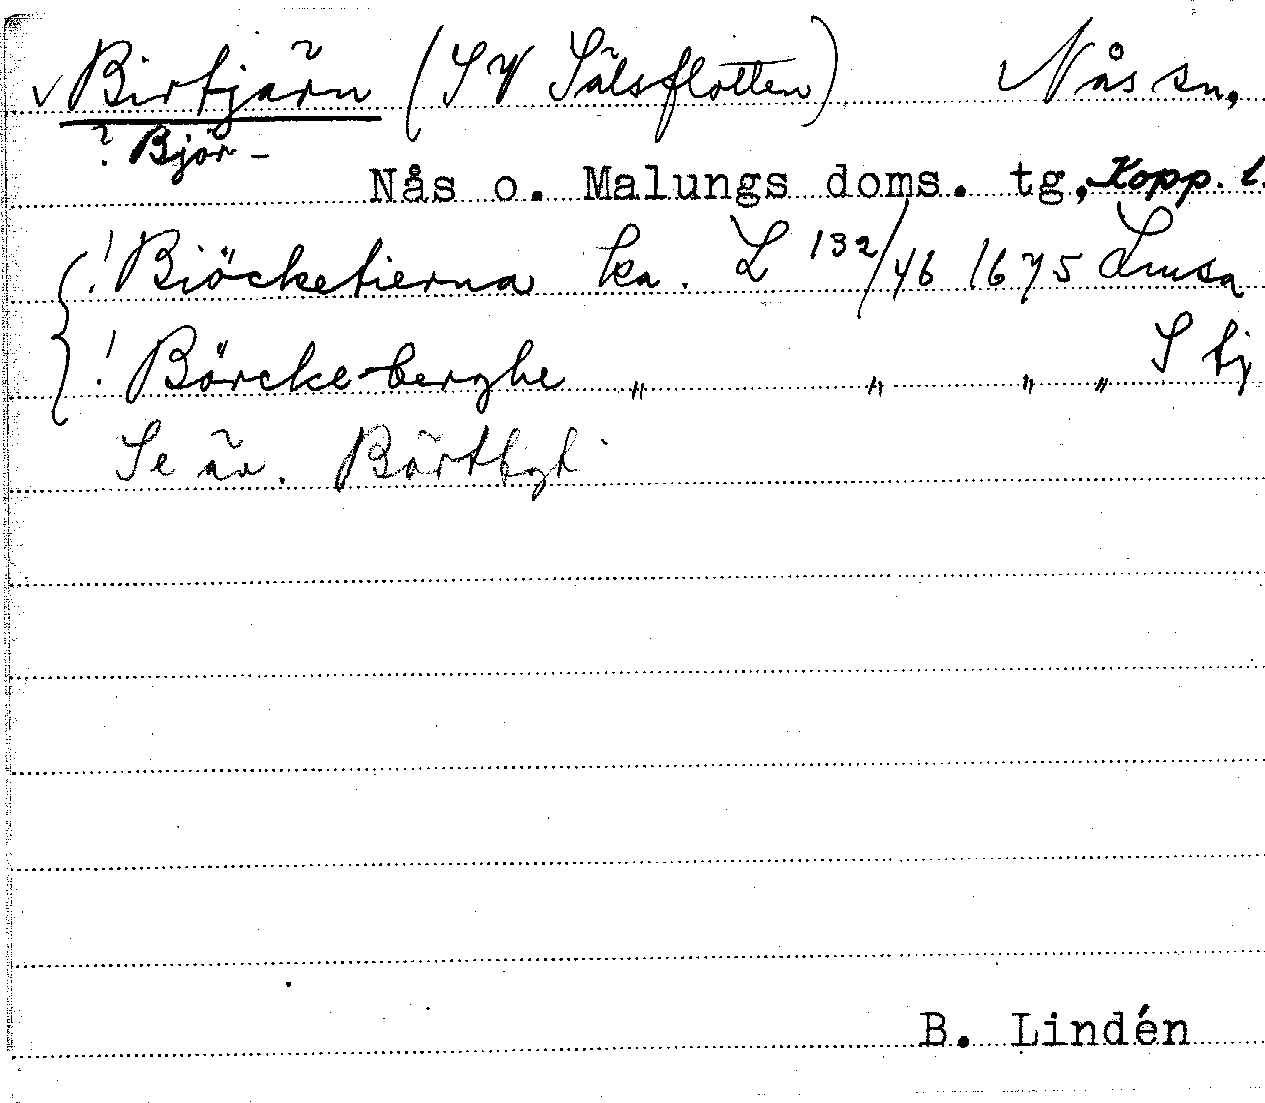 ✓ Birtjärn (SV Sälsflotten) Nås sn,
? Bjor-
Nås o. Malungs doms. tg, Kopp. l.
! Biöcketierna ka. L 132/46 1675 Lmsa
! Börcke-berghe " " " " S bj
Se äv.
B. Lindén